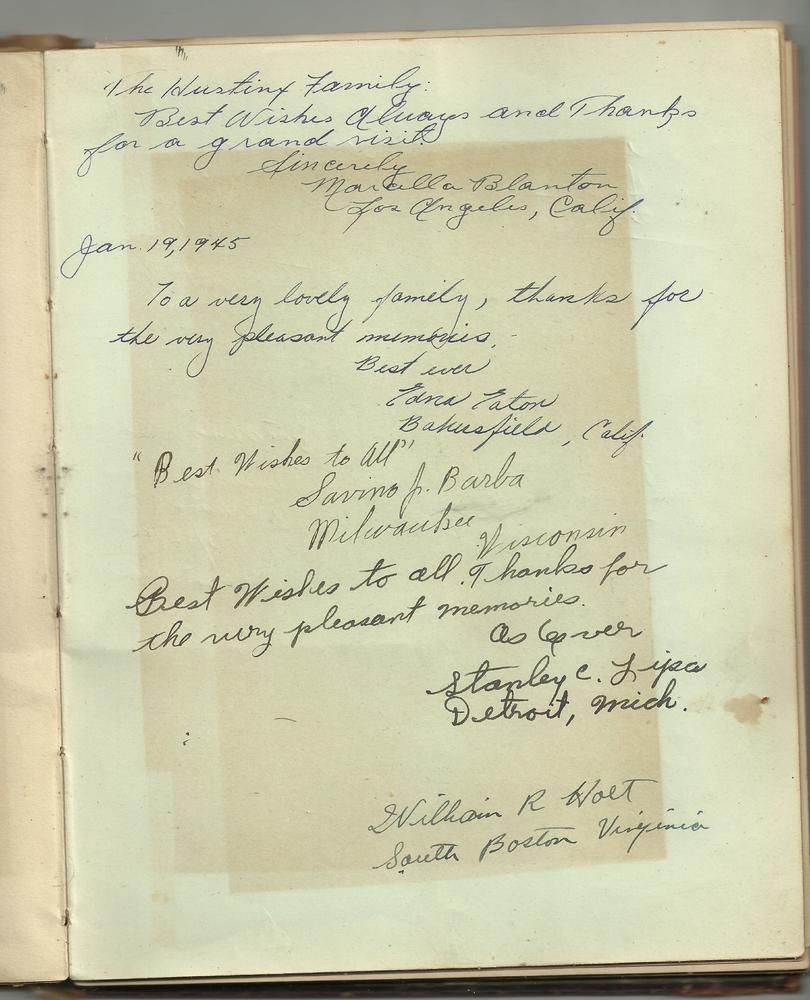 The Hustinx Family:
Best Wishes Always and Thanks
for a grand visit.
Sincerely
Marcella Blanton
Los Angeles, Calif.
Jan. 19, 1945
To a very lovely family, thanks for
the very pleasant memories.
Best ever
Edna Eaton
Bakersfield, Calif.
"Best Wishes to All"
Savino J. Barba
Milwaukee Wisconsin
Best Wishes to all. Thanks for
the very pleasant memories.
As Ever
Stanley C. Lipa
Detroit, Mich.
William R Holt
South Boston Virginia